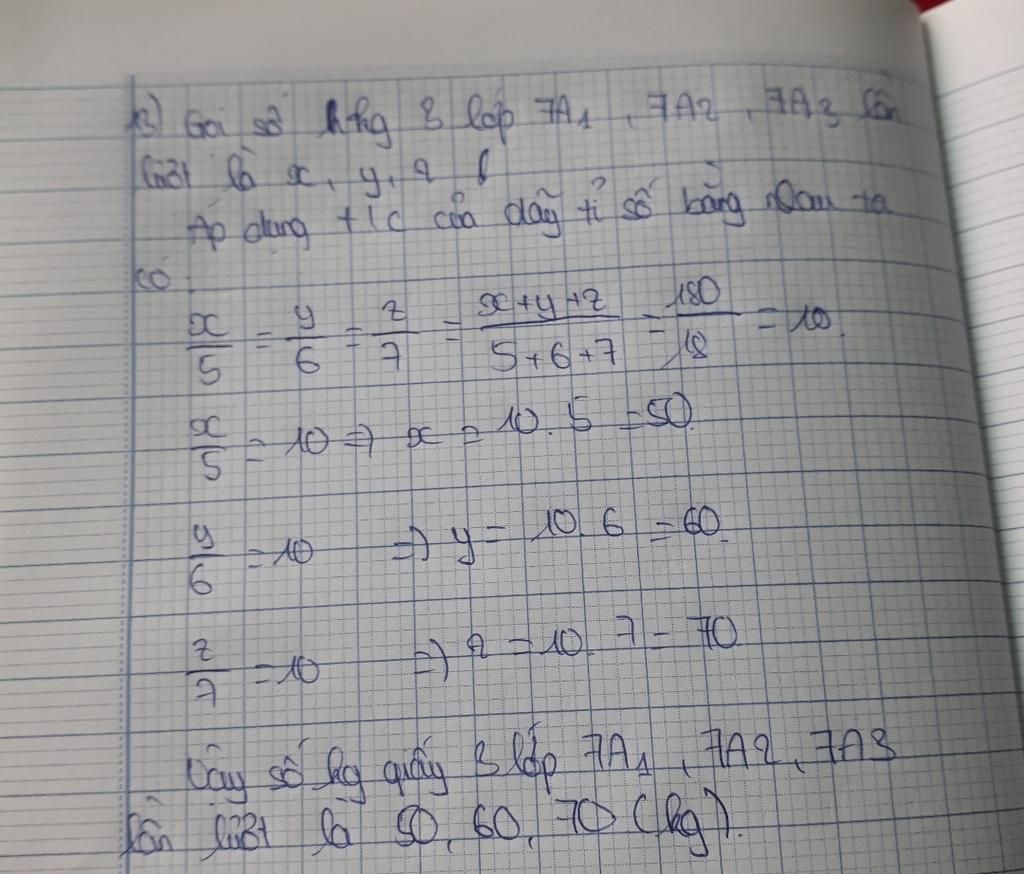 3) Gọi số kg 3 lớp 7A1, 7A2, 7A3 lần
lượt là x, y, z (
Áp dụng t/c của dãy tỉ số bằng nhau ta
có
x/5 = y/6 = z/7 = (x+y+z)/(5+6+7) = 180/18 = 10.
x/5 = 10 => x = 10.5 = 50.
y/6 = 10 => y = 10.6 = 60.
z/7 = 10 => z = 10.7 = 70
Vậy số kg giấy 3 lớp 7A1, 7A2, 7A3
lần lượt là 50, 60, 70 (kg).